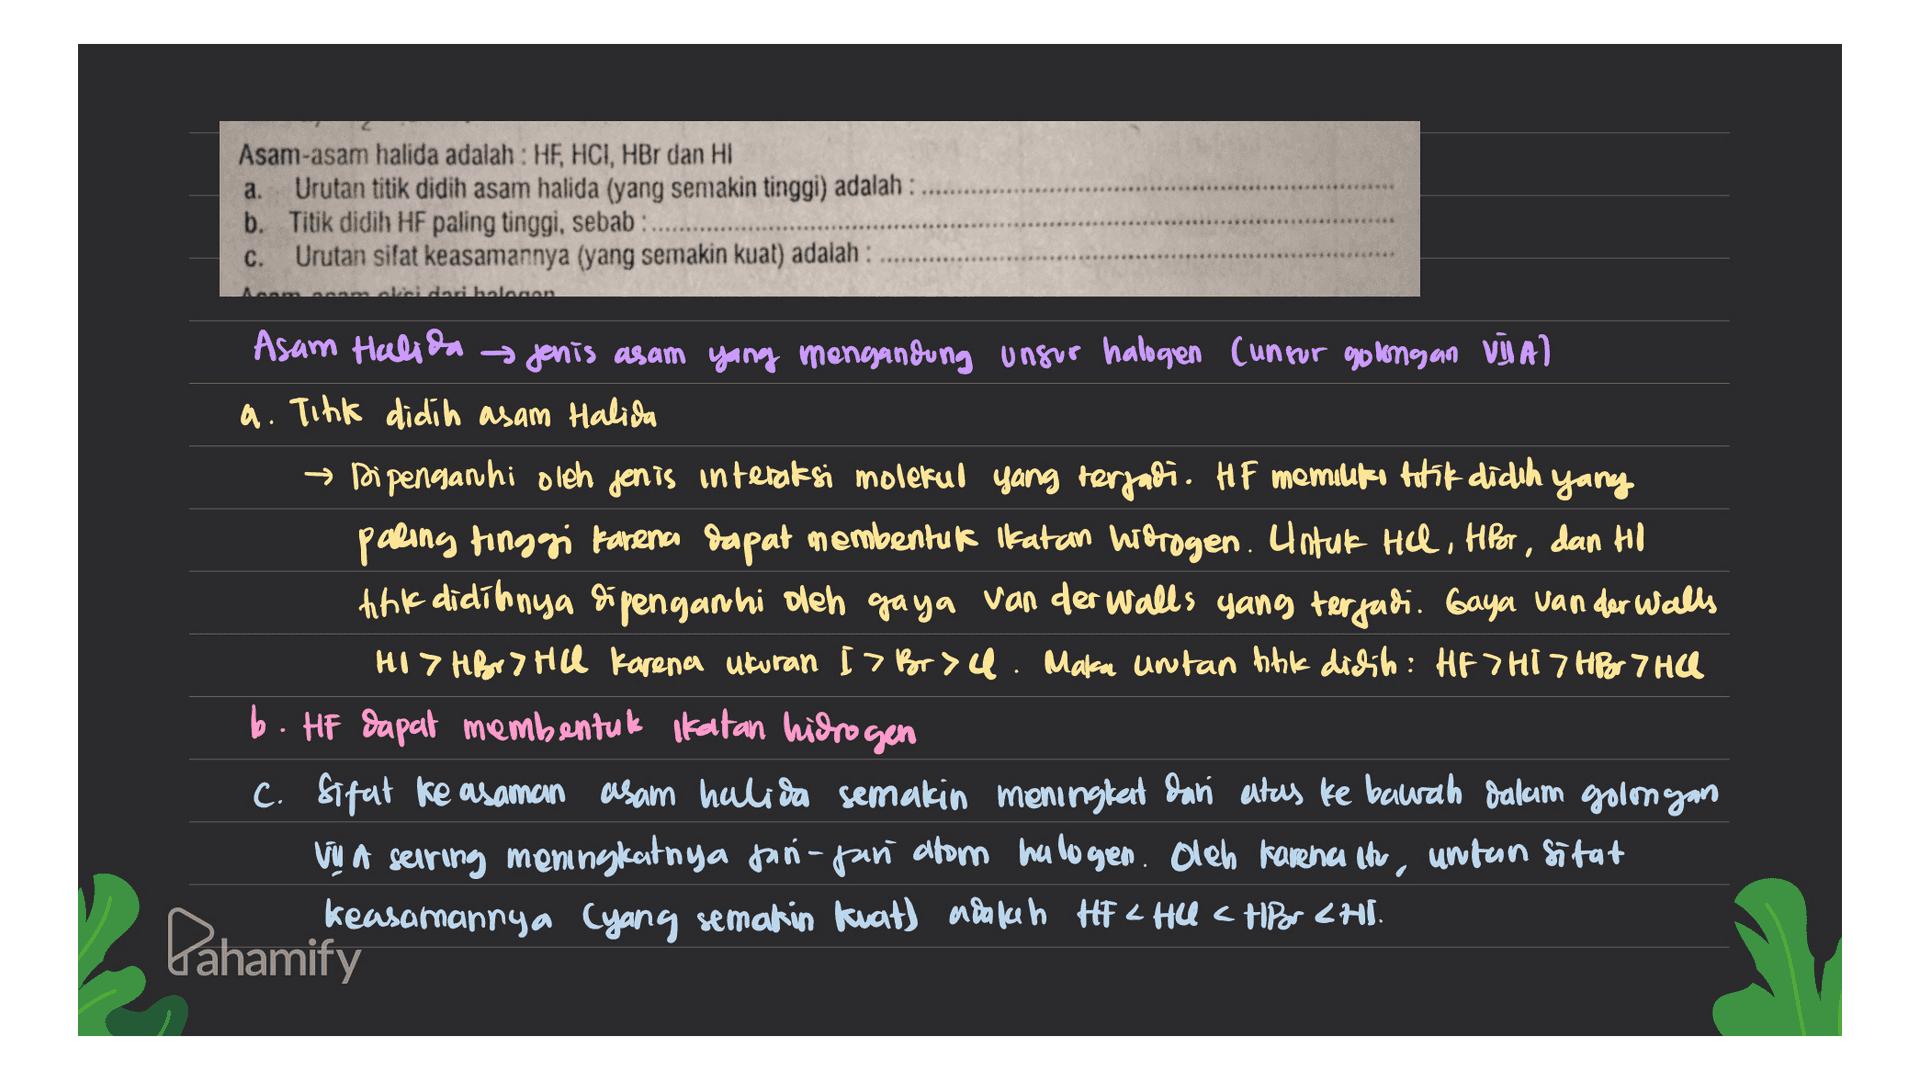 Asam-asam halida adalah : HF, HCl, HBr dan HI
a. Urutan titik didih asam halida (yang semakin tinggi) adalah : ........
b. Titik didih HF paling tinggi, sebab : ........
c. Urutan sifat keasamannya (yang semakin kuat) adalah : ........
Asam-asam oksi dari halogen
Asam Halida → jenis asam yang mengandung unsur halogen (unsur golongan VIIA)
a. Titik didih asam Halida
→ Dipengaruhi oleh jenis interaksi molekul yang terjadi. HF memiliki titik didih yang
paling tinggi karena dapat membentuk ikatan hidrogen. Untuk HCl, HBr, dan HI
titik didihnya dipengaruhi oleh gaya Van der Walls yang terjadi. Gaya Van der Walls
HI > HBr > HCl karena ukuran I > Br > Cl. Maka urutan titik didih : HF > HI > HBr > HCl
b. HF dapat membentuk ikatan hidrogen
c. Sifat keasaman asam halida semakin meningkat dari atas ke bawah dalam golongan
VIIA seiring meningkatnya jari-jari atom halogen. Oleh karena itu, urutan sifat
keasamannya (yang semakin kuat) adalah HF < HCl < HBr < HI.
Pahamify